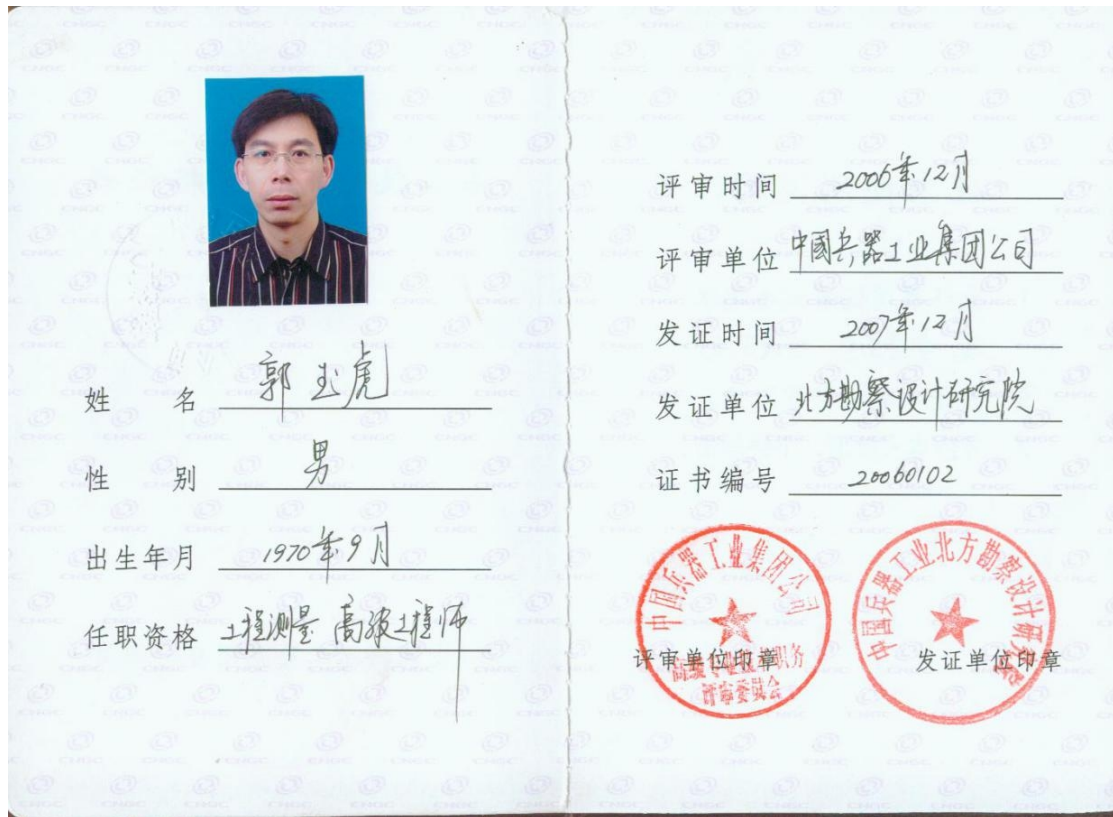 姓 名 郭玉虎
性 别 男
出生年月 1970年9月
任职资格 工程测量 高级工程师
评审时间 2006年12月
评审单位 中國兵器工业集团公司
发证时间 2007年12月
发证单位 北方勘察设计研究院
证书编号 20060102
中国兵器工业集团公司
评审单位印章
评审委员会
中國兵器工业北方勘察设计研究院
发证单位印章
CNGC